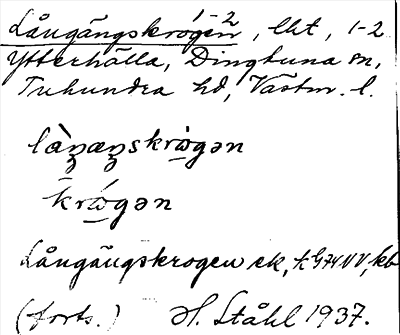 Långängskrogen 1-2, lht, 1-2
Ytterhälla, Dingtuna sn,
Tuhundra hd, Västm. l.
làŋæŋskrὼgən
krώgən
Långängskrogen ek, kb
(forts.) H. Ståhl 1937.